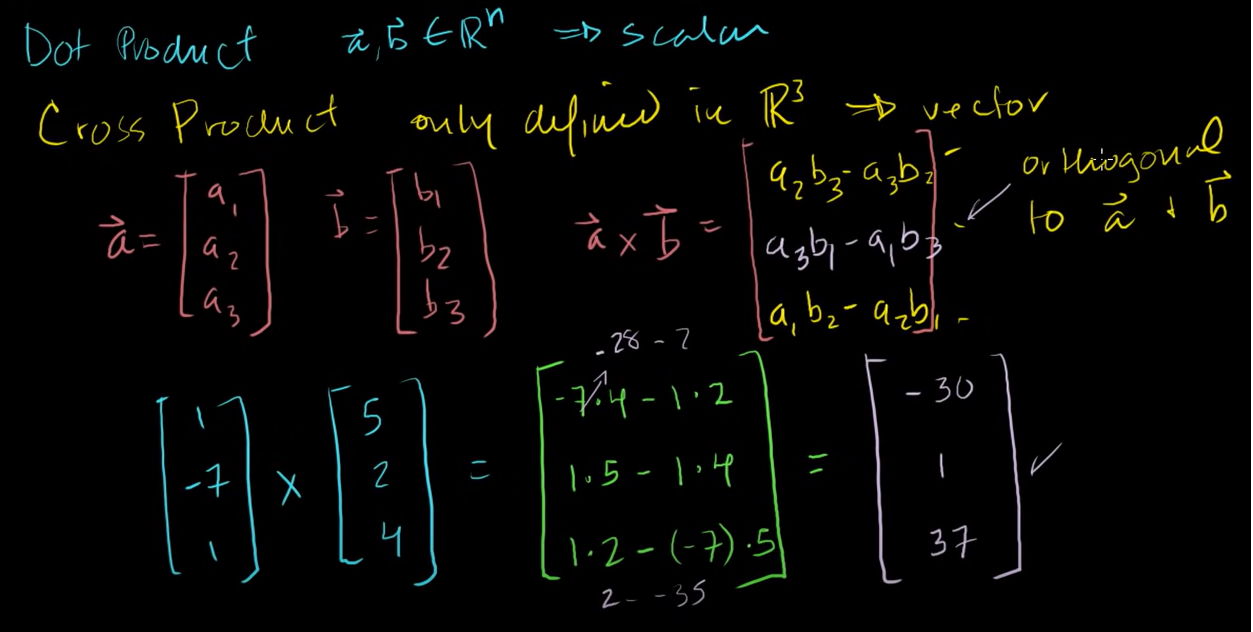 Dot Product a⃗, b⃗ ∈ ℝⁿ ⇒ scalar
Cross Product only defined in ℝ³ ⇒ vector
a⃗ = [a₁ a₂ a₃] b⃗ = [b₁ b₂ b₃] a⃗ × b⃗ = [a₂b₃ - a₃b₂ a₃b₁ - a₁b₃ a₁b₂ - a₂b₁]
orthogonal
to a⃗ + b⃗
-28 - 2
[1 -7 1] × [5 2 4] = [-7·4 - 1·2 1·5 - 1·4 1·2 - (-7)·5] = [-30 1 37] ✓
2 - -35